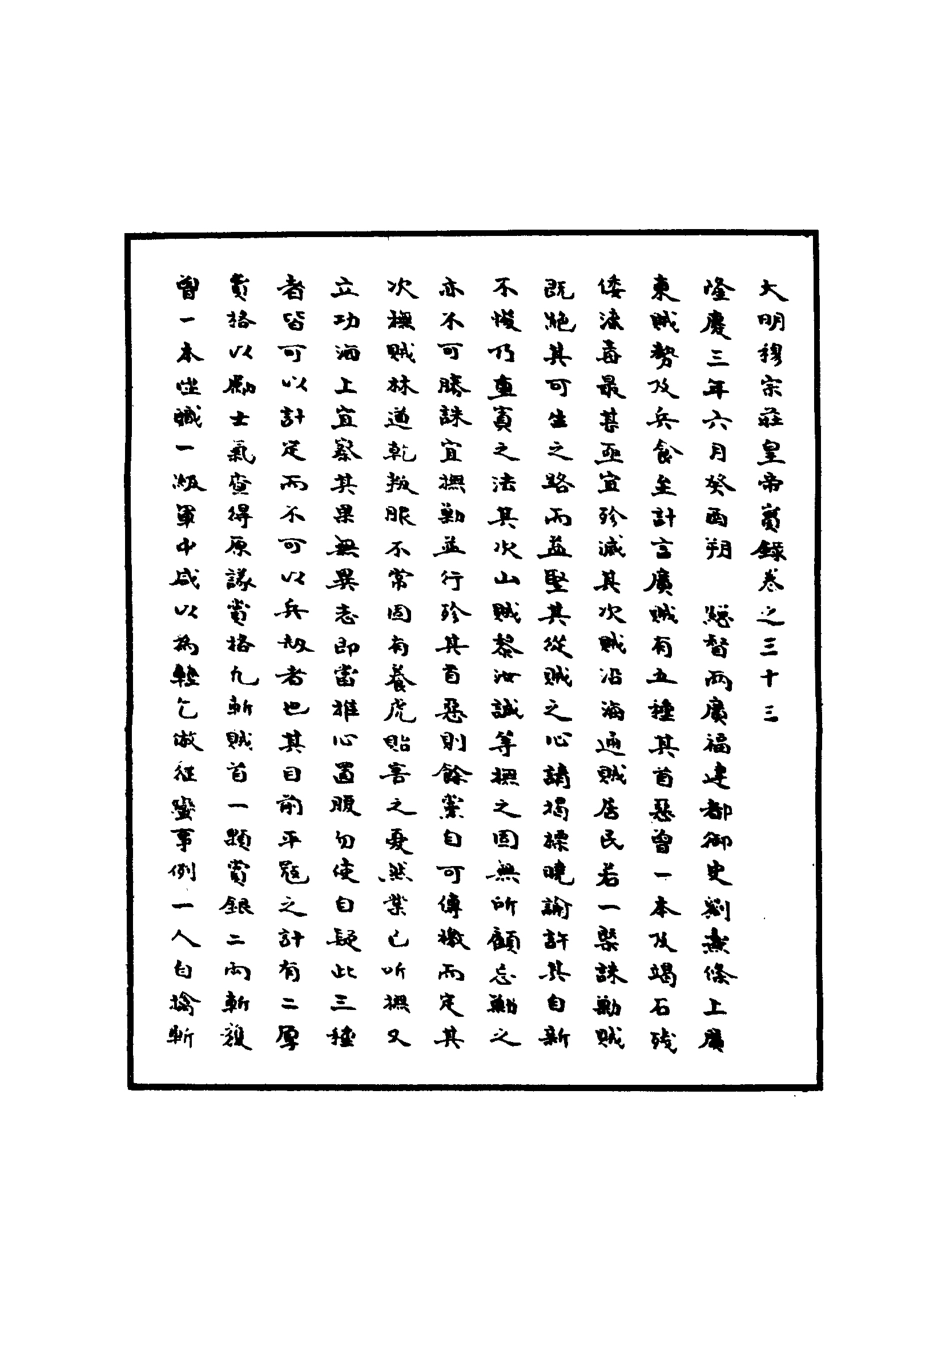 大明穆宗莊皇帝實錄卷之三十三
隆慶三年六月癸酉朔　總督兩廣福建都御史劉燾條上廣
東賊勢及兵食至計言廣賊有五種其首惡曾一本及竭石殘
倭流毒最甚亟宜殄滅其次賊沿海通賊居民若一槩誅勦賊
既絶其可生之路而益堅其從賊之心請揭摽曉諭許其自新
不悛乃重寘之法其次山賊黎汝誠等撫之固無所顧忌勦之
亦不可勝誅宜撫勦並行殄其首惡則餘黨自可傳檄而定其
次撫賊林道乾叛服不常固有養虎貽害之憂然業已听撫又
立功海上宜察其果無異志即當推心置腹勿使自疑此三種
者皆可以計定而不可以兵敌者也其目前平冦之計有二厚
賞格以勵士氣查得原議賞格凢斬賊首一顆賞銀二兩斬獲
曾一本陞職一級軍中咸以為輕乞倣征蠻事例一人自擒斬